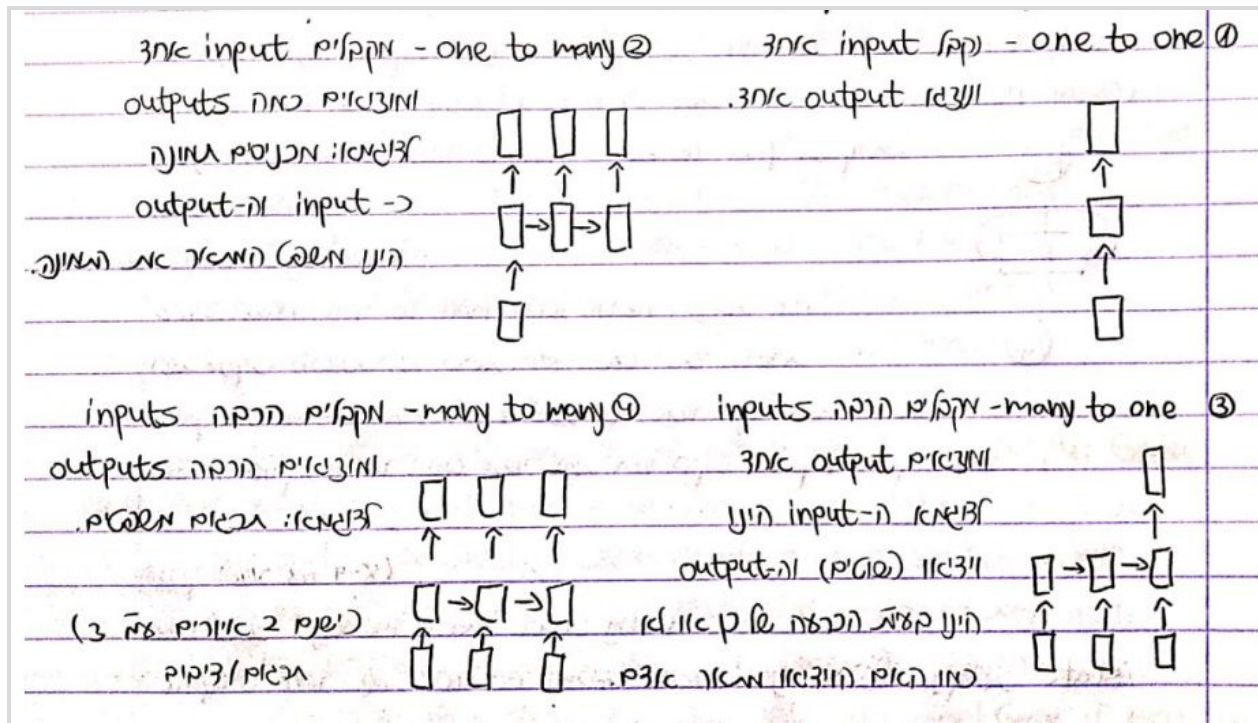 ① one to one - נקבל input אחד
ונוציא output אחד.
② one to many - מקבלים input אחד
ומוציאים כמה outputs
לדוגמא: מכניסים תמונה
כ- input וה-output
הינו משפט המתאר את התמונה.
③ many to one - מקבלים הרבה inputs
ומוציאים output אחד
לדוגמא ה-input הינו
וידיאו (שוטים) וה-output
הינו בעיית הכרעה של כן או לא
כמו האם הוידיאו מתאר אדם.
④ many to many - מקבלים הרבה inputs
ומוציאים הרבה outputs
לדוגמא: תרגום משפטים.
(ישנם 2 איורים עמ' 3)
תרגום/דיבוב